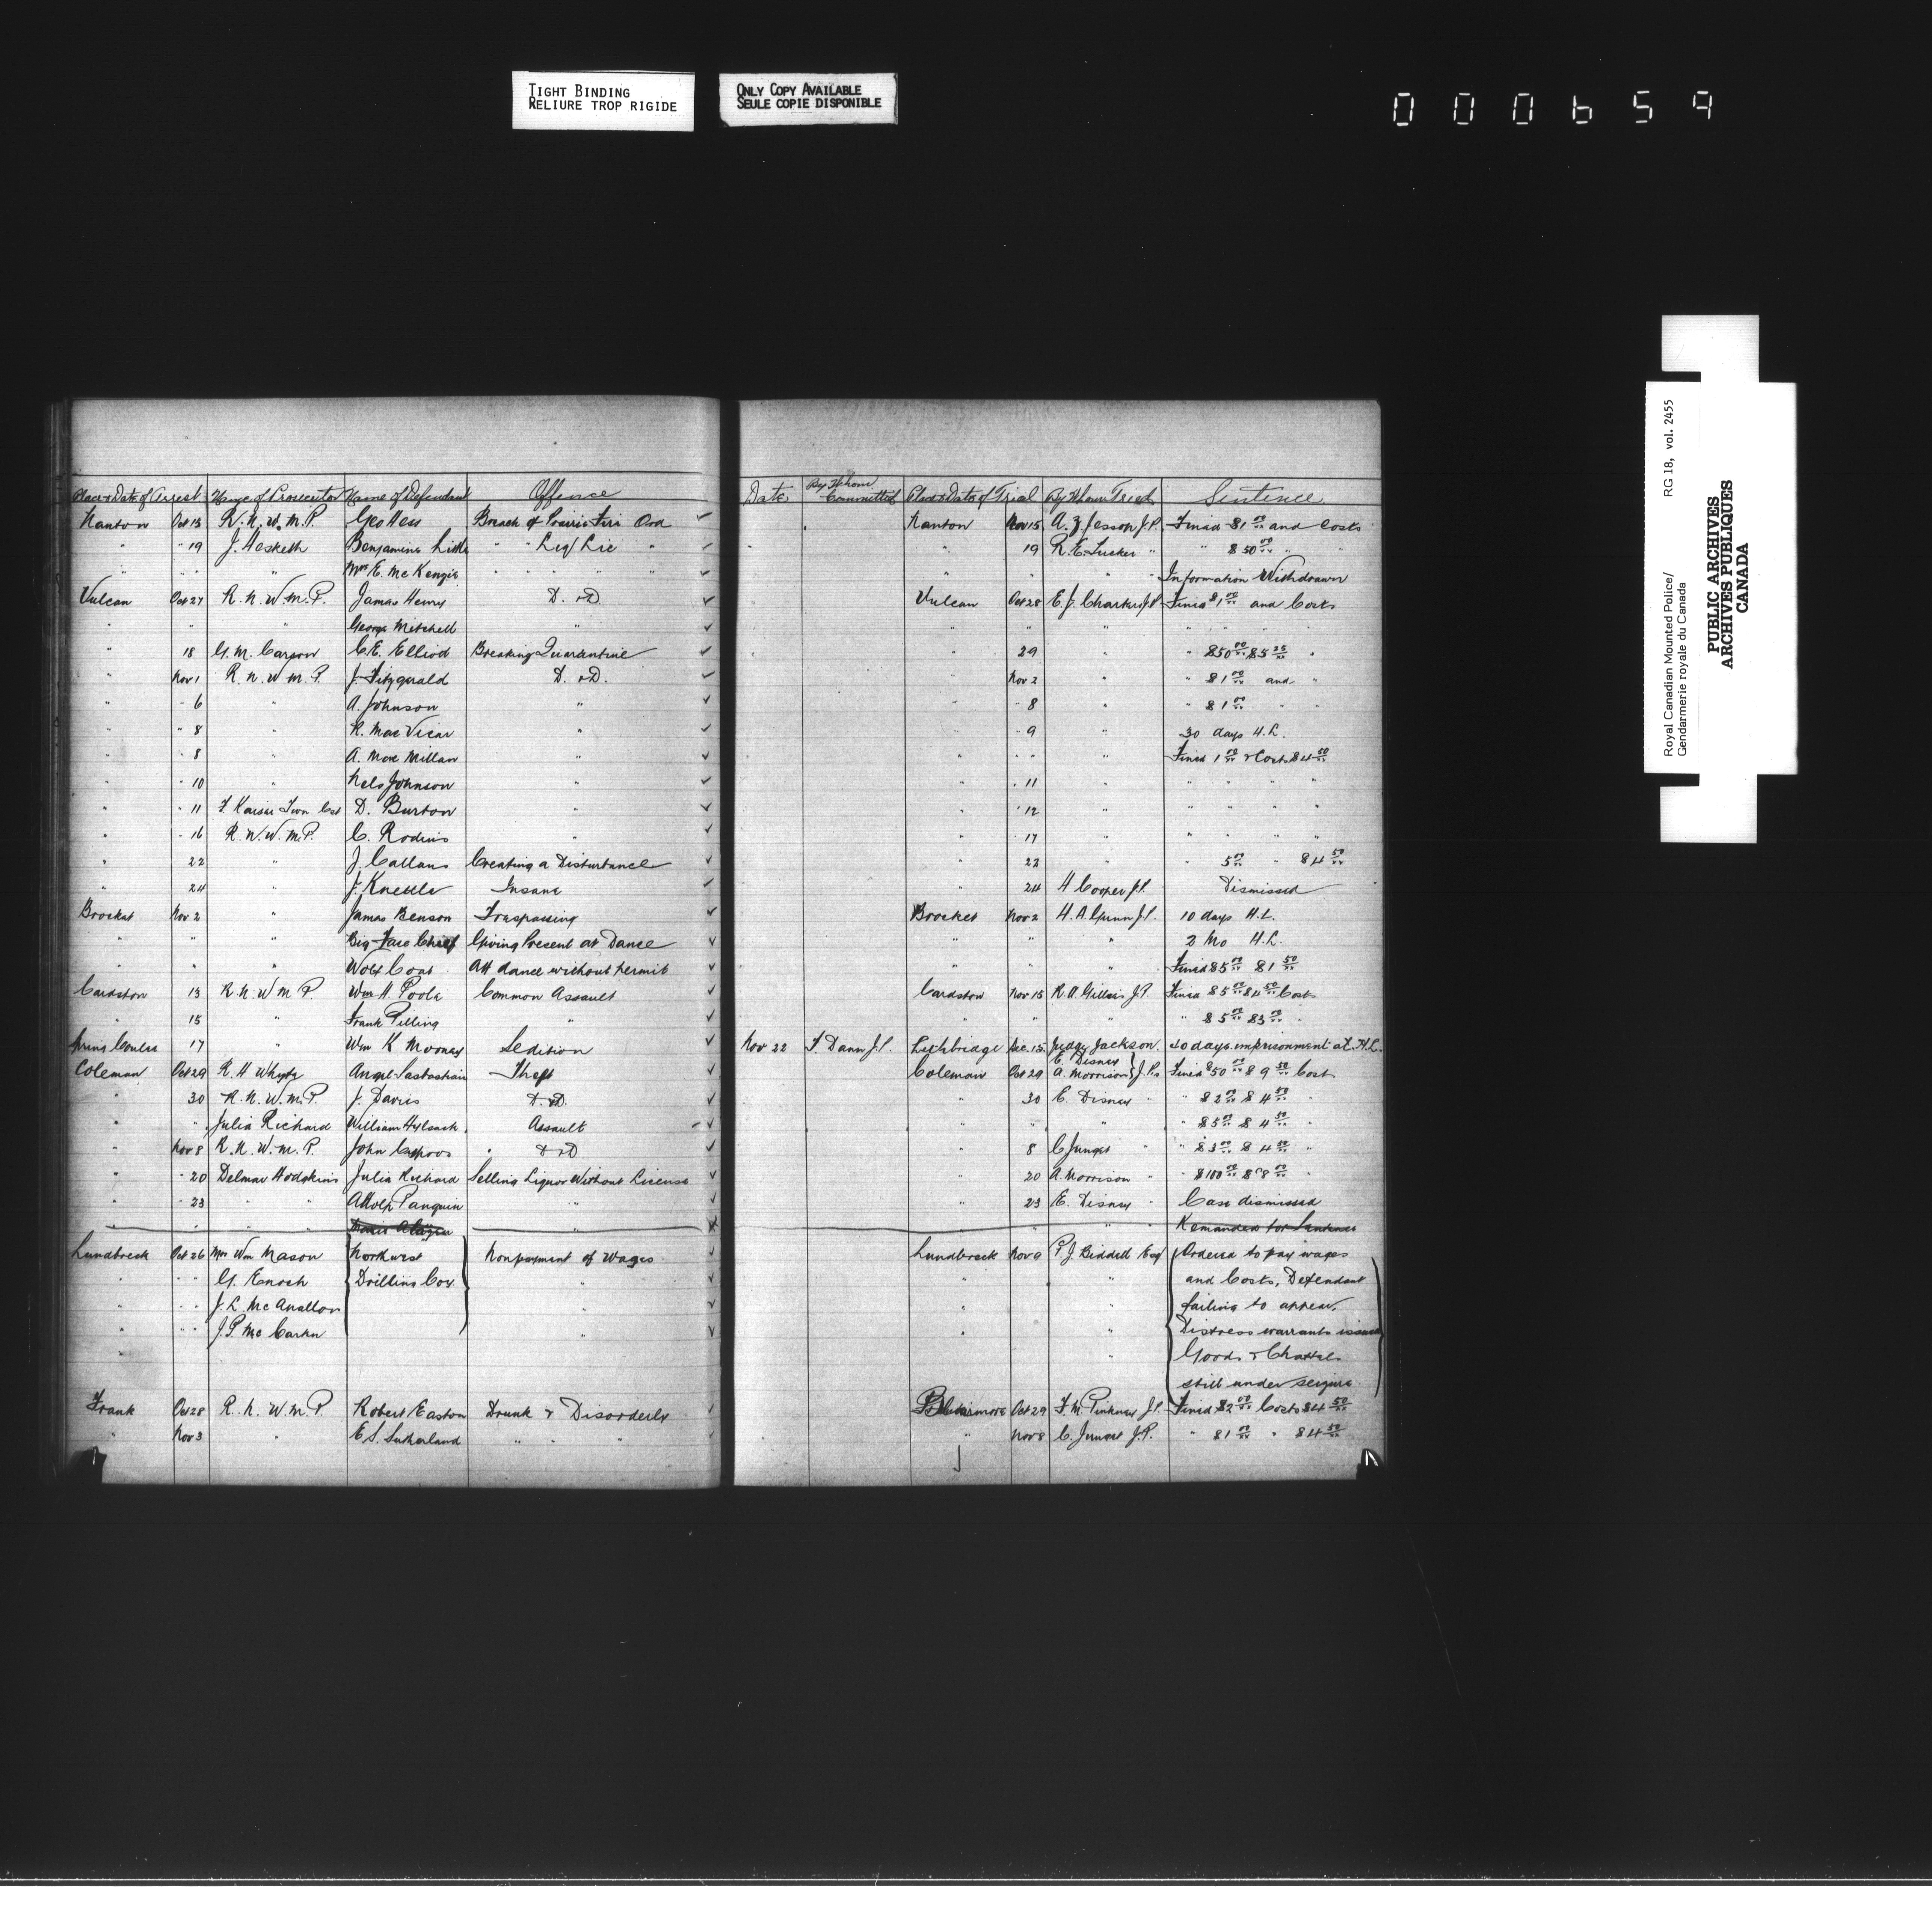 TIGHT BINDING
RELIURE TROP RIGIDE
ONLY COPY AVAILABLE
SEULE COPIE DISPONIBLE
000659
Place & Date of Arrest Name of Prosecutor Name of Defendant Offence Date By Whom Committed Place & Date of Trial By Whom Tried Sentence
Nanton Oct 13 R. N. W. M. P. Geo Hess Breach of Prairie Fire Ord Nanton Nov 15 A. Z. Jessop J.P. Fined $1 00/xx and Costs
" " 19 J. Hesketh Benjamine Little " " Liq/Lic " " 19 R. E. Tucker " " $50 00/xx " "
" " " " Mrs E. McKenzie " " " " " " " " Information Withdrawn
Vulcan Oct 27 R. N. W. M. P. James Henry D. & D Vulcan Oct 28 E. J. J.P. Fined $1 00/xx and Costs
" " " George Mitchell " " " " " " " "
" 18 G. M. Carson C. E. Elliod Breaking Quarantine " 29 " " $50 00/xx $5 25/xx "
" Nov 1 R. N. W. M. P. J. Fitzgerald D. & D. " Nov 2 " " $1 00/xx and "
" " 6 " A. Johnson " " " 8 " " $1 00/xx " "
" " 8 " R. MacVicar " " " 9 " 30 days H.L.
" " 8 " A. Millan " " " " " Fined 1 00/xx & Costs $4 50/xx
" " 10 " Nels Johnson " " " 11 " " " " "
" " 11 D. Burton " " " 12 " " " " "
" " 16 R. N. W. M. P. C. Rodins " " 17 " " " " "
" 22 " J. Callans Creating a Disturbance " 22 " " 5 00/xx " $4 50/xx
" 24 " J. Insane " 24 H Cooper J.P. Dismissed
Brocket Nov 2 " James Benson Trespassing Brocket Nov 2 H. A. Gunn J.P. 10 days H.L.
" " " Big Face Chief Giving Present at Dance " " " 2 Mo H.L.
" " " Wolf Coat Att dance without permit " " " Fined $5 00/xx $1 50/xx
Cardston 13 R. N. W. M. P. Wm H. Poole Common Assault Cardston Nov 15 R. A. J.P. Fined $5 00/xx $4 50/xx Costs
" 15 " Frank Pilling " " " " " $5 00/xx $3 00/xx "
Spring Coulee 17 " Wm K Mooney Sedition Nov 22 F Dann J.P. Lethbridge Dec. 15 Judge Jackson. 40 days imprisonment at H.L.
Coleman Oct 29 R. H Whyte Angel Sastastrain Theft Coleman Oct 29 E. Disney A. Morrison } J.Ps Fined $50 00/xx $9 50/xx Cost
" 30 R. N. W. M. P. J. Davis D. & D. " 30 E. Disney " " $2 00/xx $4 50/xx "
" " Julia Richard William Assault " " " " $5 00/xx $4 50/xx "
" Nov 8 R. N. W. M. P. John D & D " 8 C " " $3 00/xx $4 50/xx "
" " 20 Delmar Hodgkins Julia Richard Selling Liquor Without License " 20 A. Morrison " " $100 00/xx $8 00/xx "
" " 23 " " Adolf Panquin " " 23 E. Disney " Case dismissed
" " " " " " " " Remanded for Sentence
Lundbreck Oct 26 Mrs Wm Mason { Northwest Nonpayment of Wages Lundbreck Nov 9 P. J. Esq { Ordered to pay wages
" " " G. Enoch Drilling Coy } " " " and Costs, Defendant
" " " J. L. McAnallon " " " failing to appear.
" " " J. P. " " " Distress warrants issued
" " Goods & Chattels
still under seizure
Frank Oct 28 R. N. W. M. P. Robert Easton Drunk & Disorderly Blairmore Oct 29 F. M. Pinkney J.P. Fined $2 00/xx Costs $4 50/xx
" Nov 3 " E. S. Sutherland " " " " Nov 8 C. J.P. " $1 00/xx " $4 50/xx
Royal Canadian Mounted Police/ RG 18, vol. 2455
Gendarmerie royale du Canada
PUBLIC ARCHIVES
ARCHIVES PUBLIQUES
CANADA